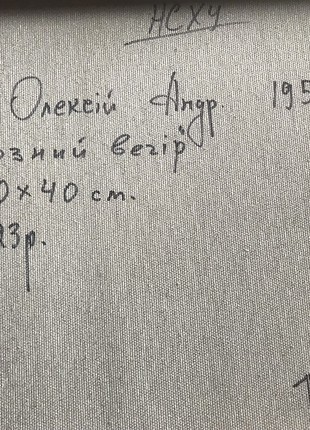 НСХУ
Олексій Андр. 195
озний вечір"
0 × 40 см.
23р.